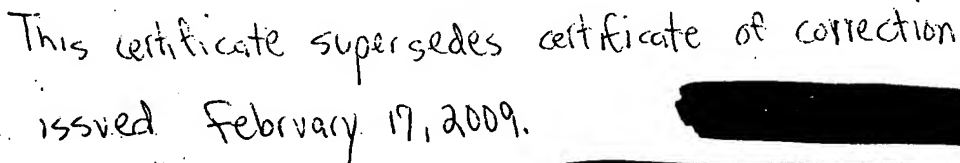 This certificate supersedes certificate of correction
issued February 17, 2009.